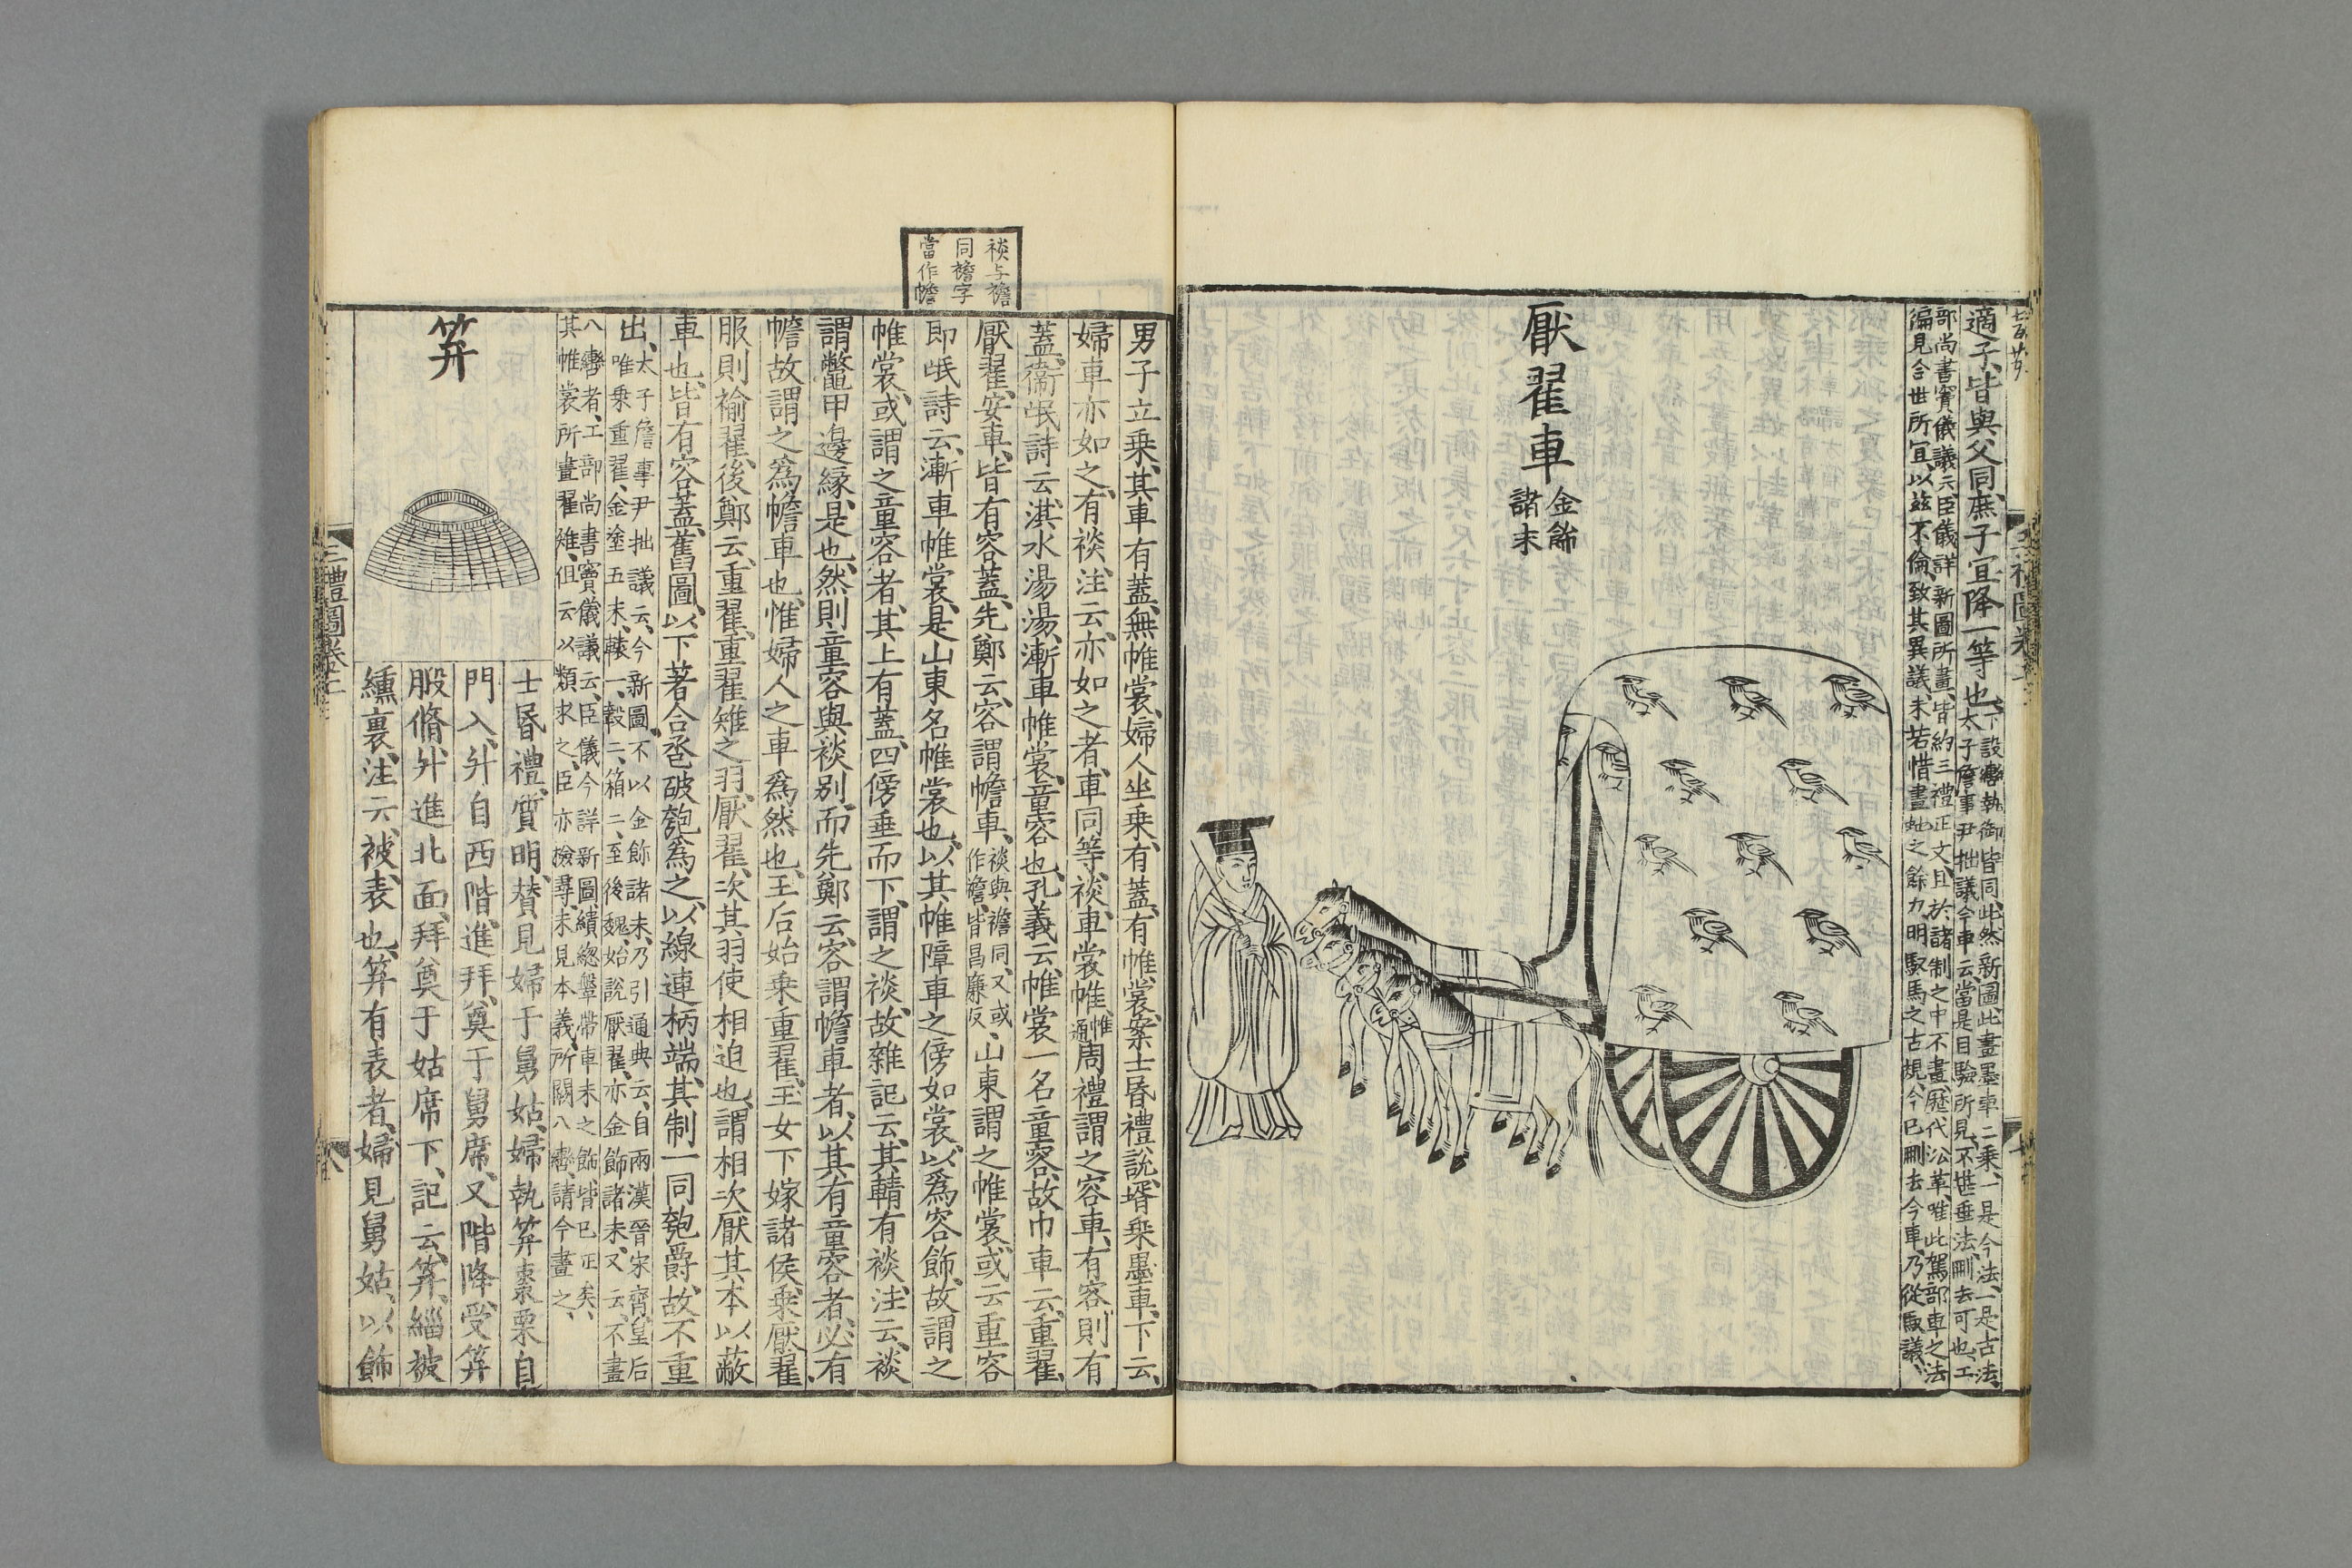 適子皆與父同庶子宜降一等也
下設轡執御皆同此然新圖此畫墨車二乘一是今法一是古法
太子詹事尹拙議今車云當是目驗所見不堪垂法刪去可也工
部尚書竇儀議云臣儀詳新圖所畫皆約三禮正文且於諸制之中不畫歷代沿革唯此駕部車之法
徧見今世所宜以茲不倫致其異議未若惜畫虵之餘力明馭馬之古規今已刪去今車乃從馭議
厭翟車
金飾
諸末
男子立乘其車有蓋無帷裳婦人坐乘有蓋有帷裳案士昏禮說壻乘墨車下云
婦車亦如之有裧注云亦如之者車同等裧車裳帷
惟
通
周禮謂之容車有容則有
蓋衛氓詩云淇水湯湯漸車帷裳童容也孔義云帷裳一名童容故巾車云重翟
厭翟安車皆有容蓋先鄭云容謂幨車
裧與襜同又或
作襜皆昌廉反
山東謂之帷裳或云重容
即氓詩云漸車帷裳是山東名帷裳也以其帷障車之傍如裳以爲容飾故謂之
帷裳或謂之童容者其上有蓋四傍垂而下謂之裧故雜記云其輤有裧注云裧
謂鼈甲邊緣是也然則童容與裧別而先鄭云容謂幨車者以其有童容者必有
幨故謂之爲幨車也惟婦人之車爲然也王后始乘重翟王女下嫁諸侯乘厭翟
服則褕翟後鄭云重翟重翟雉之羽厭翟次其羽使相迫也謂相次厭其本以蔽
車也皆有容蓋舊圖以下著合卺破匏爲之以線連柄端其制一同匏爵故不重
出
太子詹事尹拙議云今新圖不以金飾諸末乃引通典云自兩漢晉宋齊皇后
唯乘重翟金塗五末轅一轂二箱二至後魏始說厭翟亦金飾諸末又云不畫
八轡者工部尚書竇儀議云臣儀今詳新圖續緫鞶帶車末之飾皆已正矣
其帷裳所畫翟雉但云以類求之臣亦檢尋未見本義所闕八轡請今畫之
裧与襜
同襜字
當作幨
笲
士昏禮質明賛見婦于舅姑婦執笲棗栗自
門入升自西階進拜奠于舅席又階降受笲
腶脩升進北面拜奠于姑席下記云笲緇被
纁裏注云被表也笲有表者婦見舅姑以飾
三禮圖卷二
八